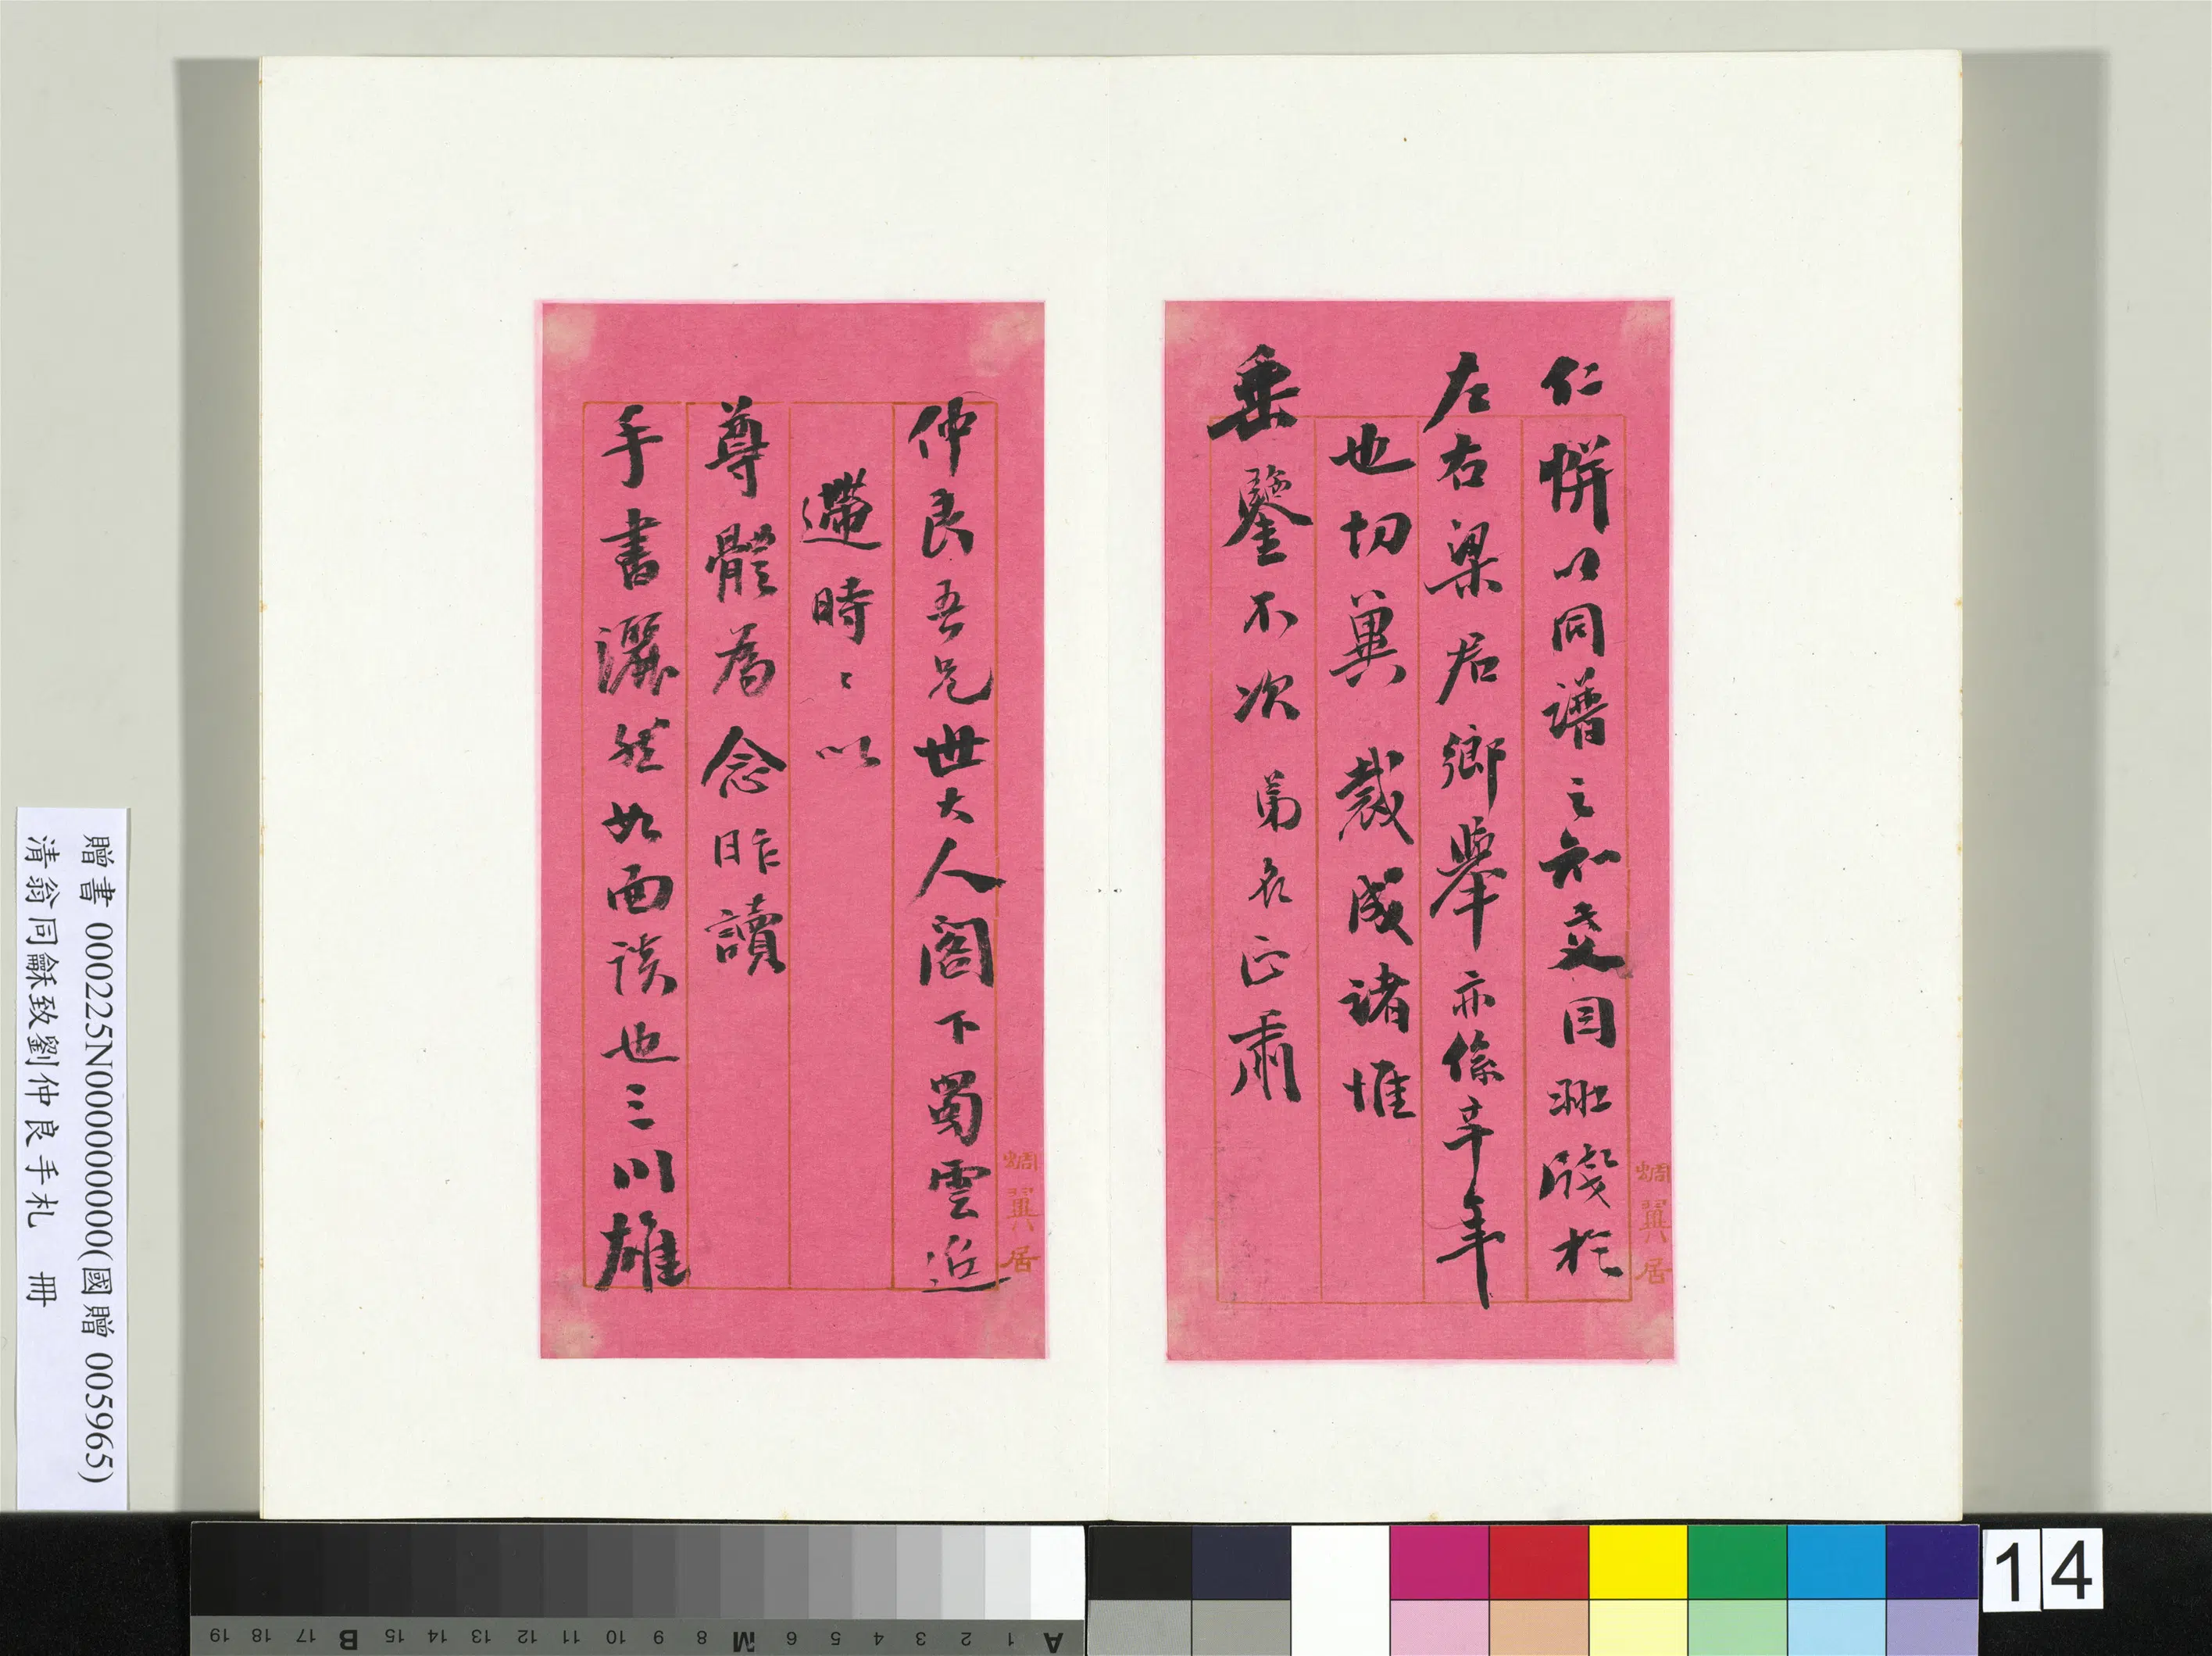 仁帡以同譜之知交因班殘於
左右梁居鄉舉亦係辛年
也切冀裁成諸惟
垂鑒不次 弟名正肅
烱翼居
仲良吾兄世大人閣下蜀雲近
遰時〻以
尊體為念昨讀
手書灑然如面談也三川雄
烱翼居
贈書 000225N000000000(國贈 005965)
清翁同龢致劉仲良手札 冊
A 1 2 3 4 5 6 M 8 9 10 11 12 13 14 15 B 17 18 19
14